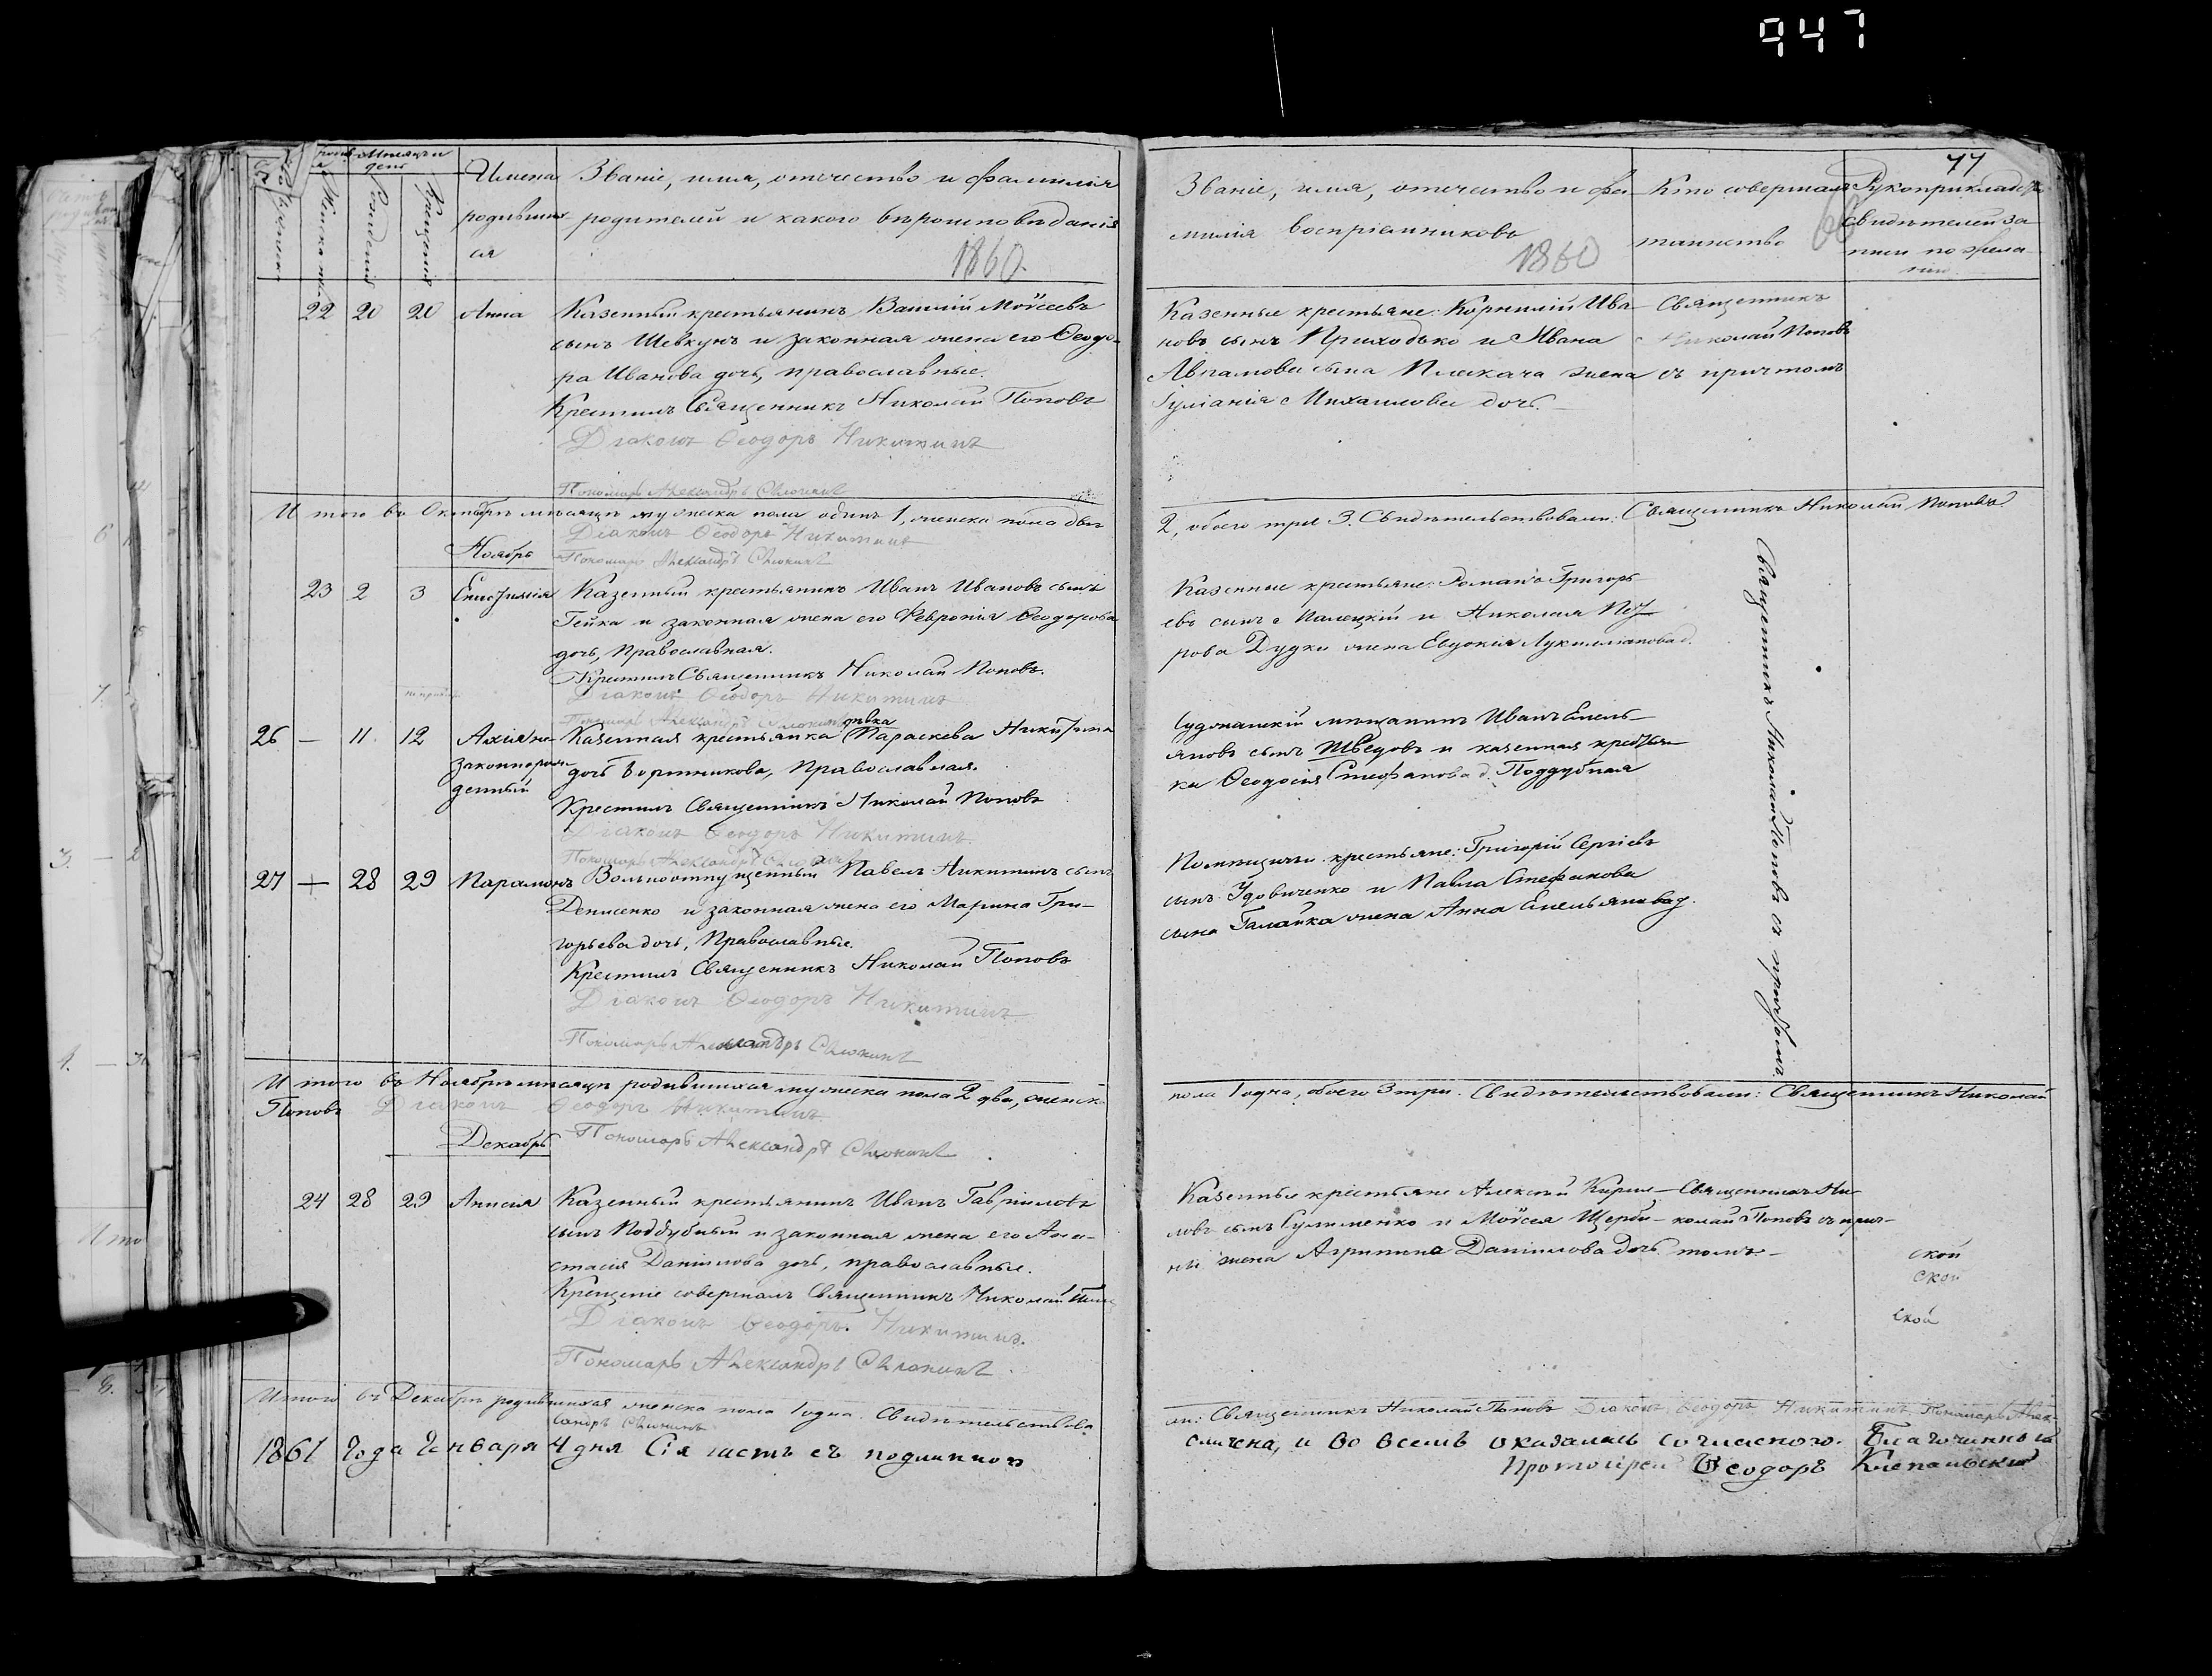 947
77
Мѣсяцъ и день
Рожденія
Крещенія
Имена родившихся
Званіе, имя, отчество и фамилія
родителей и какого вѣроисповѣданія
1860.
Званіе, имя, отчество и фа-
милія воспріемниковъ
1860
Кто совершалъ
таинство
Рукоприкладст
свидѣтелей за
писи по жела
нію
22 20 20 Анна Казенный крестьянинъ Василій Мойсеевъ
сынъ Шевкунъ и законная жена его Ѳеодо-
ра Иванова дочь, православные.
Крестилъ Священникъ Николай Поповъ
Діаконъ Ѳеодоръ Никитинъ
Пономарь Александръ
Казенные крестьяне: Корнилій Ива-
новъ сынъ Приходько и Ивана
Авраамова сына Плескача жена
Гуліанія Михаилова дочь.
Священникъ
Николай Поповъ
съ причтомъ
Итого въ Октябрѣ мѣсяцѣ мужеска пола одинъ 1, женска пола двѣ
2, обоего три 3. Свидѣтельствовали: Священникъ Николай Поповъ
Діаконъ Ѳеодоръ Никитинъ
Пономарь Александръ
Ноябрь
23 2 3 Казенный крестьянинъ Иванъ Ивановъ сынъ
Гейка и законная жена его Февронія Ѳеодорова
дочь, Православная.
Крестилъ Священникъ Николай Поповъ.
Діаконъ Ѳеодоръ Никитинъ
Пономарь Александръ
Казенные крестьяне: Романъ Григорь-
евъ сынъ Палецкій и Николая Пет-
рова Дудки жена Евдокія Лукилліанова д.
Священникъ Николай Поповъ съ причтомъ
26 — 11 12
законнорож
денный
дѣвка
Казенная крестьянка Параскева Никитина
дочь Бортникова, Православная.
Крестилъ Священникъ Николай Поповъ
Діаконъ Ѳеодоръ Никитинъ.
Пономарь Александръ
мѣщанинъ Иванъ Емель-
яновъ сынъ Шведовъ и казенная крестьян-
ка Ѳеодосія Стефанова д. Поддубная
27 — 28 29 Парамонъ Вольноотпущенный Павелъ Никитинъ сынъ
Денисенко и законная жена его Марина Гри-
горьева дочь, Православные.
Крестилъ Священникъ Николай Поповъ
Діаконъ Ѳеодоръ Никитинъ
Пономарь Александръ
Помѣщичьи крестьяне: Григорій Сергіевъ
сынъ Удовиченко и Павла Стефанова
сына Галайка жена Анна Емельянова д.
Итого въ Ноябрѣ мѣсяцѣ родившихся мужеска пола 2 два, женска
пола 1 одна, обоего 3 три. Свидѣтельствовали: Священникъ Николай
Поповъ Діаконъ Ѳеодоръ Никитинъ
Пономарь Александръ
Декабрь
24 28 29 Анисія Казенный крестьянинъ Иванъ Гавріиловъ
сынъ Поддубный и законная жена его Ана-
стасія Даніилова дочь, православные.
Крещеніе совершалъ Священникъ Николай
Діаконъ Ѳеодоръ Никитинъ.
Пономарь Александръ
Казенные крестьяне Алексѣй Кирил-
ловъ сынъ Сулименко и Мойсея Щерби-
ны жена Агрипина Даніилова дочь
Священникъ Ни-
колай Поповъ съ прич-
томъ
ской
ской
ской
Итого въ Декабрѣ родившихся женска пола 1 одна. Свидѣтельствова
ли: Священникъ Николай Поповъ Діаконъ Ѳеодоръ Никитинъ Пономарь Алек-
сандръ
1861 Года Генваря 4 дня Сія часть съ подлинною
сличена, и во всемъ оказалась согласною. Благочинный
Протоіерей Ѳеодоръ